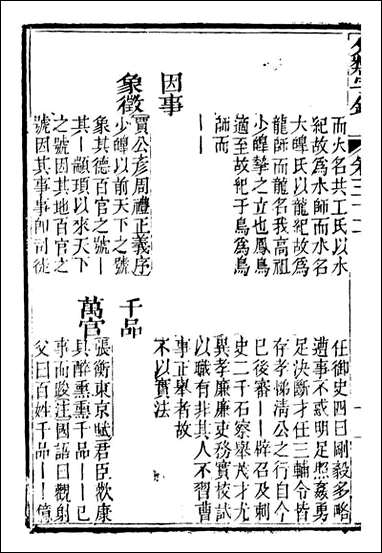 分類字錦 卷三十二
而火名共工氏以水
紀故爲水師而水名
大皥氏以龍紀故爲
龍師而龍名我高祖
少皥摯之立也鳳鳥
適至故紀于鳥爲鳥
師而
丨丨
因事
象徵
賈公彥周禮正義序
少皥以前天下之號
象其德百官之號丨
其丨顓頊以來天下
之號因其地百官之
號因其事事卽司徒
任御史四曰剛毅多略
遭事不惑明足照姦勇
足決斷才任三輔令皆
存孝悌淸公之行自今
已後審丨丨辟召及刺
史二千石察舉茂才尤
異孝廉廉吏務實校試
以職有非其人不習曹
事正舉者故
不以實法
千品
萬官
張衡東京賦君臣歡康
具醉熏熏千品丨丨已
事而踆注國語曰觀射
父曰百姓千品丨丨億